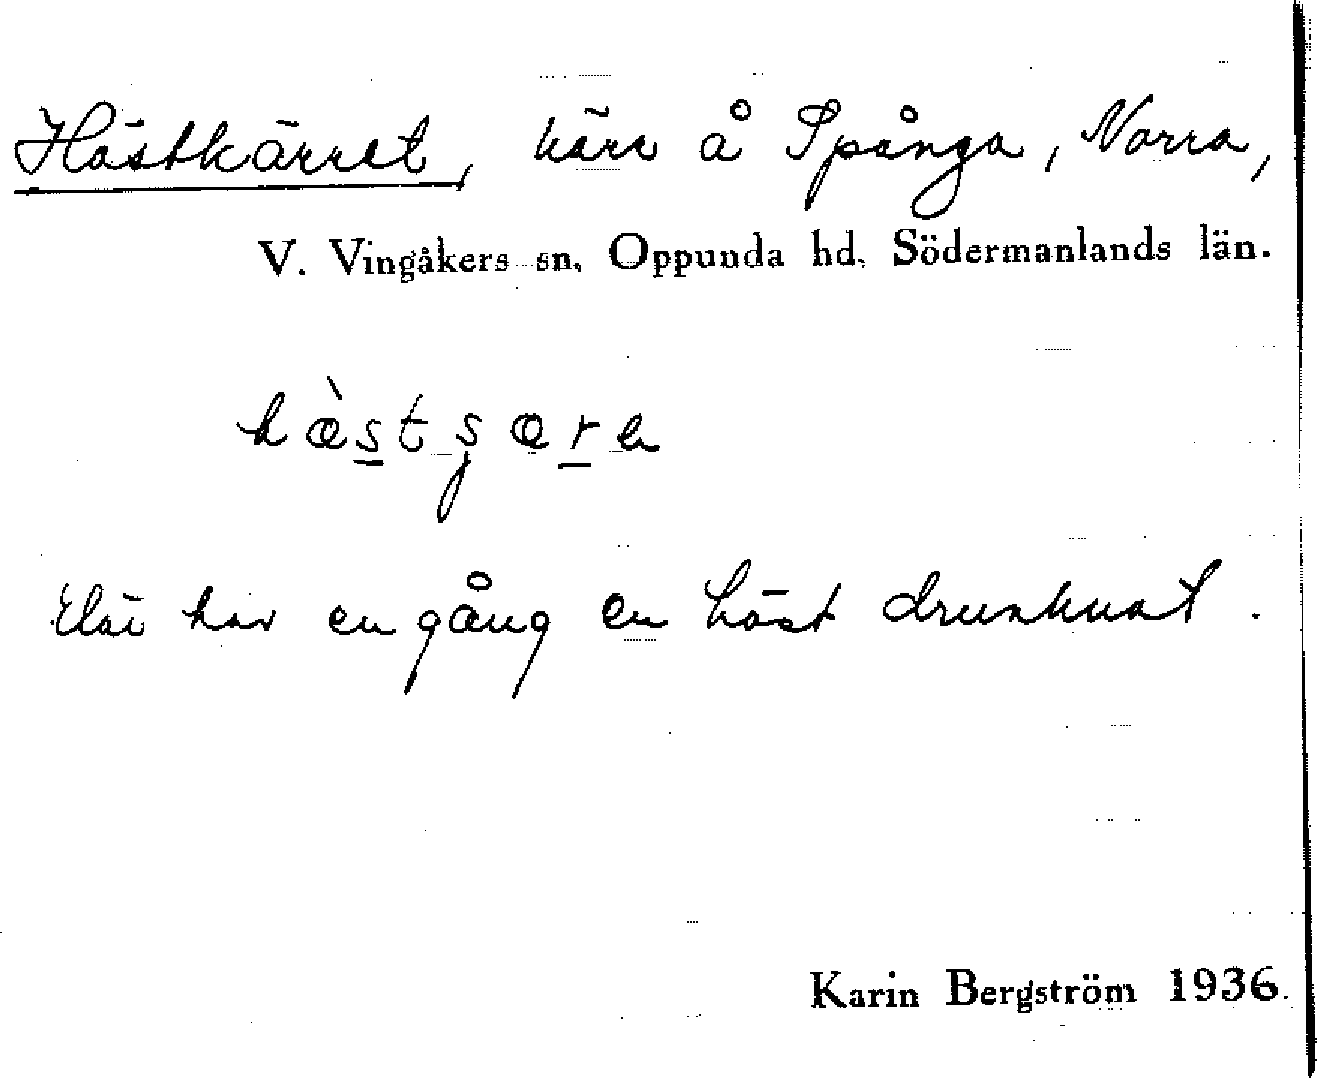 Hästkärret, kärr å Spånga, Norra,
V. Vingåkers sn, Oppunda hd, Södermanlands län.
hæ̀stʂære
Där har en gång en häst drunknat.
Karin Bergström 1936.